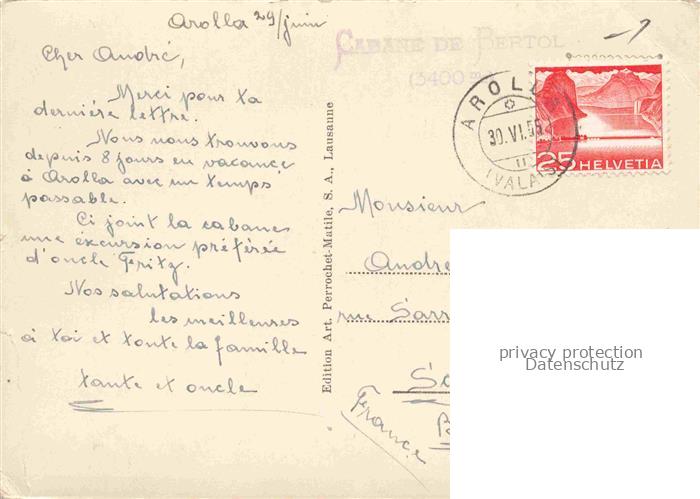 Arolla 29/juin
Cher André,
Merci pour ta
dernière lettre.
Nous nous trouvons
depuis 8 jours en vacance
à Arolla avec un temps
passable.
Ci joint la cabane
une éxcursion préférée
d'oncle Fritz.
Nos salutations
les meilleures
à toi et toute la famille
tante et oncle
Edition Art. Perrochet-Matile, S. A., Lausanne
CABANE DE BERTOL
(3400 m)
AROLLA
30.VI.55
(VALAIS)
25 HELVETIA
Monsieur
Andre
rue Sarr
France
privacy protection
Datenschutz